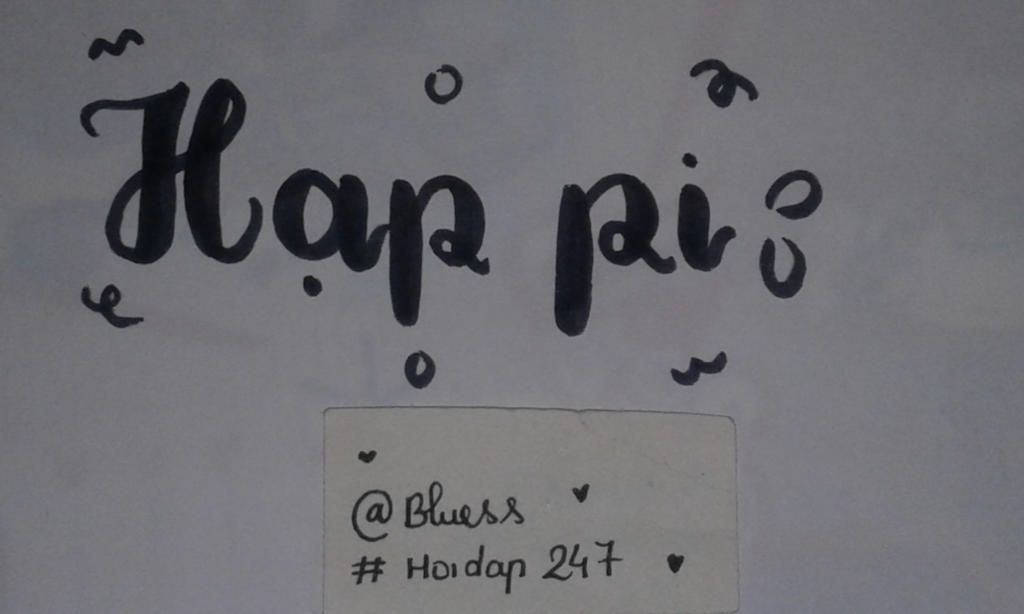 Hạp pi
@Bluess
# Hoidap 247